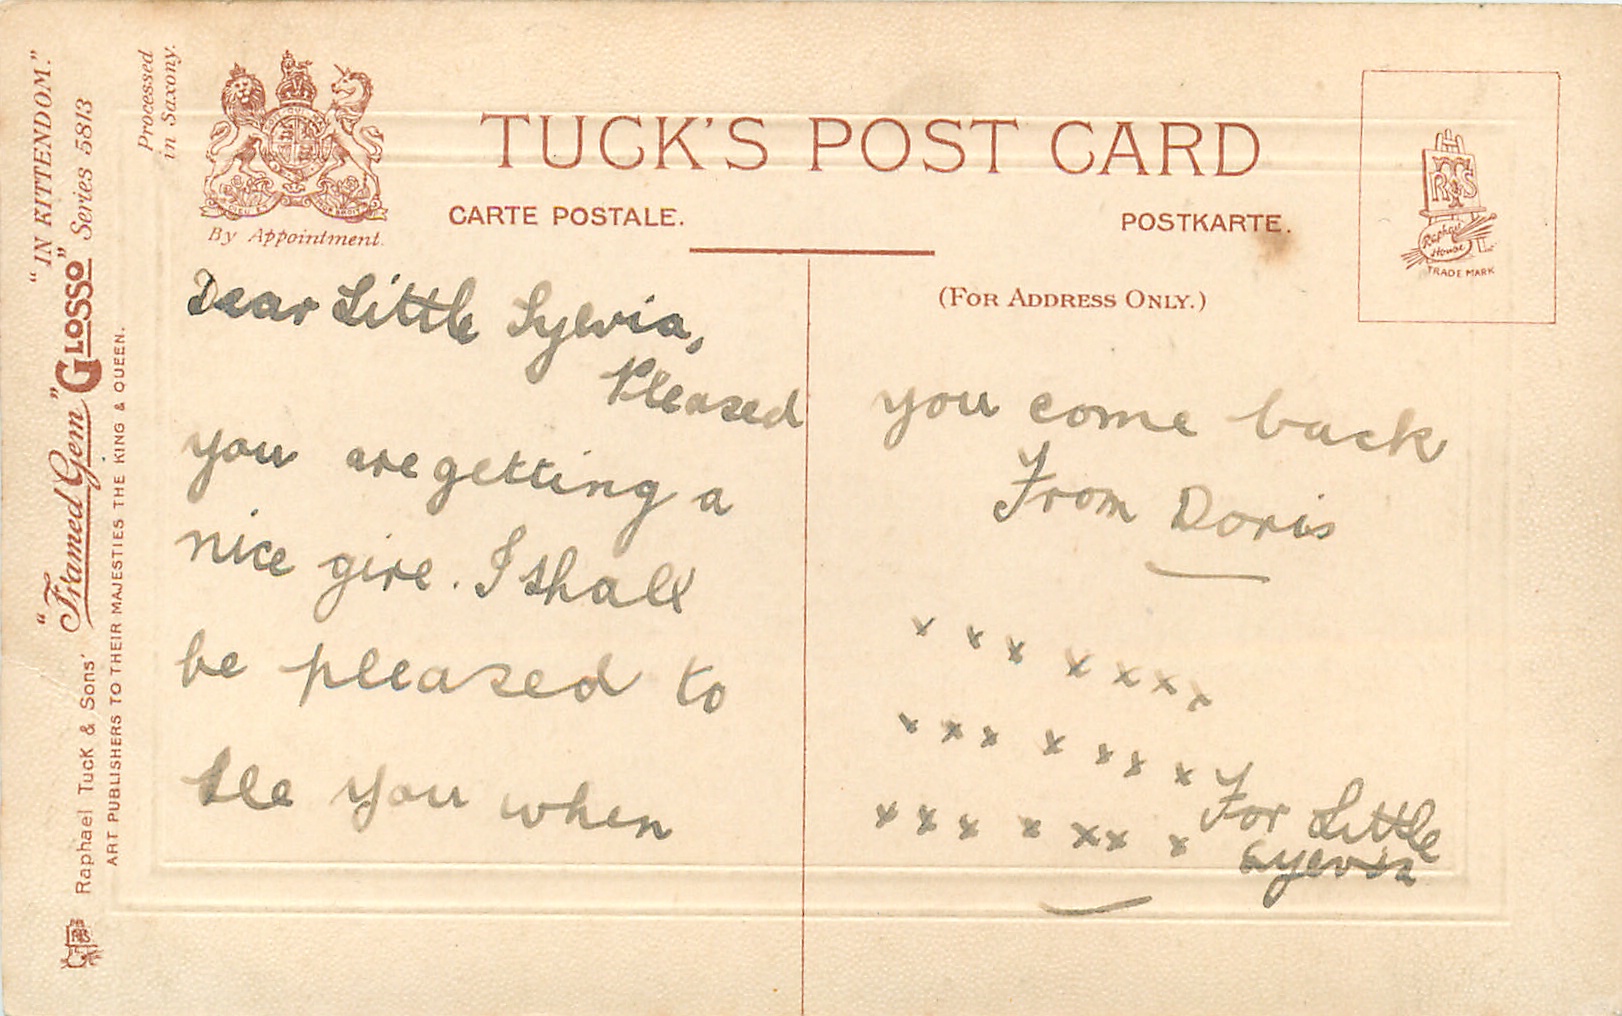 "IN KITTENDOM."
"Framed Gem" "GLOSSO" Series 5813
Raphael Tuck & Sons'
ART PUBLISHERS TO THEIR MAJESTIES THE KING & QUEEN.
Processed
in Saxony.
By Appointment.
TUCK'S POST CARD
CARTE POSTALE.
POSTKARTE.
(FOR ADDRESS ONLY.)
RTS
Raphael
House
TRADE MARK
Dear Little Sylvia,
Pleased
you are getting a
nice girl. I shall
be pleased to
see you when
you come back
From Doris
x x x x x x x
x x x x x x x
x x x x x x x
For Little
Sylvia